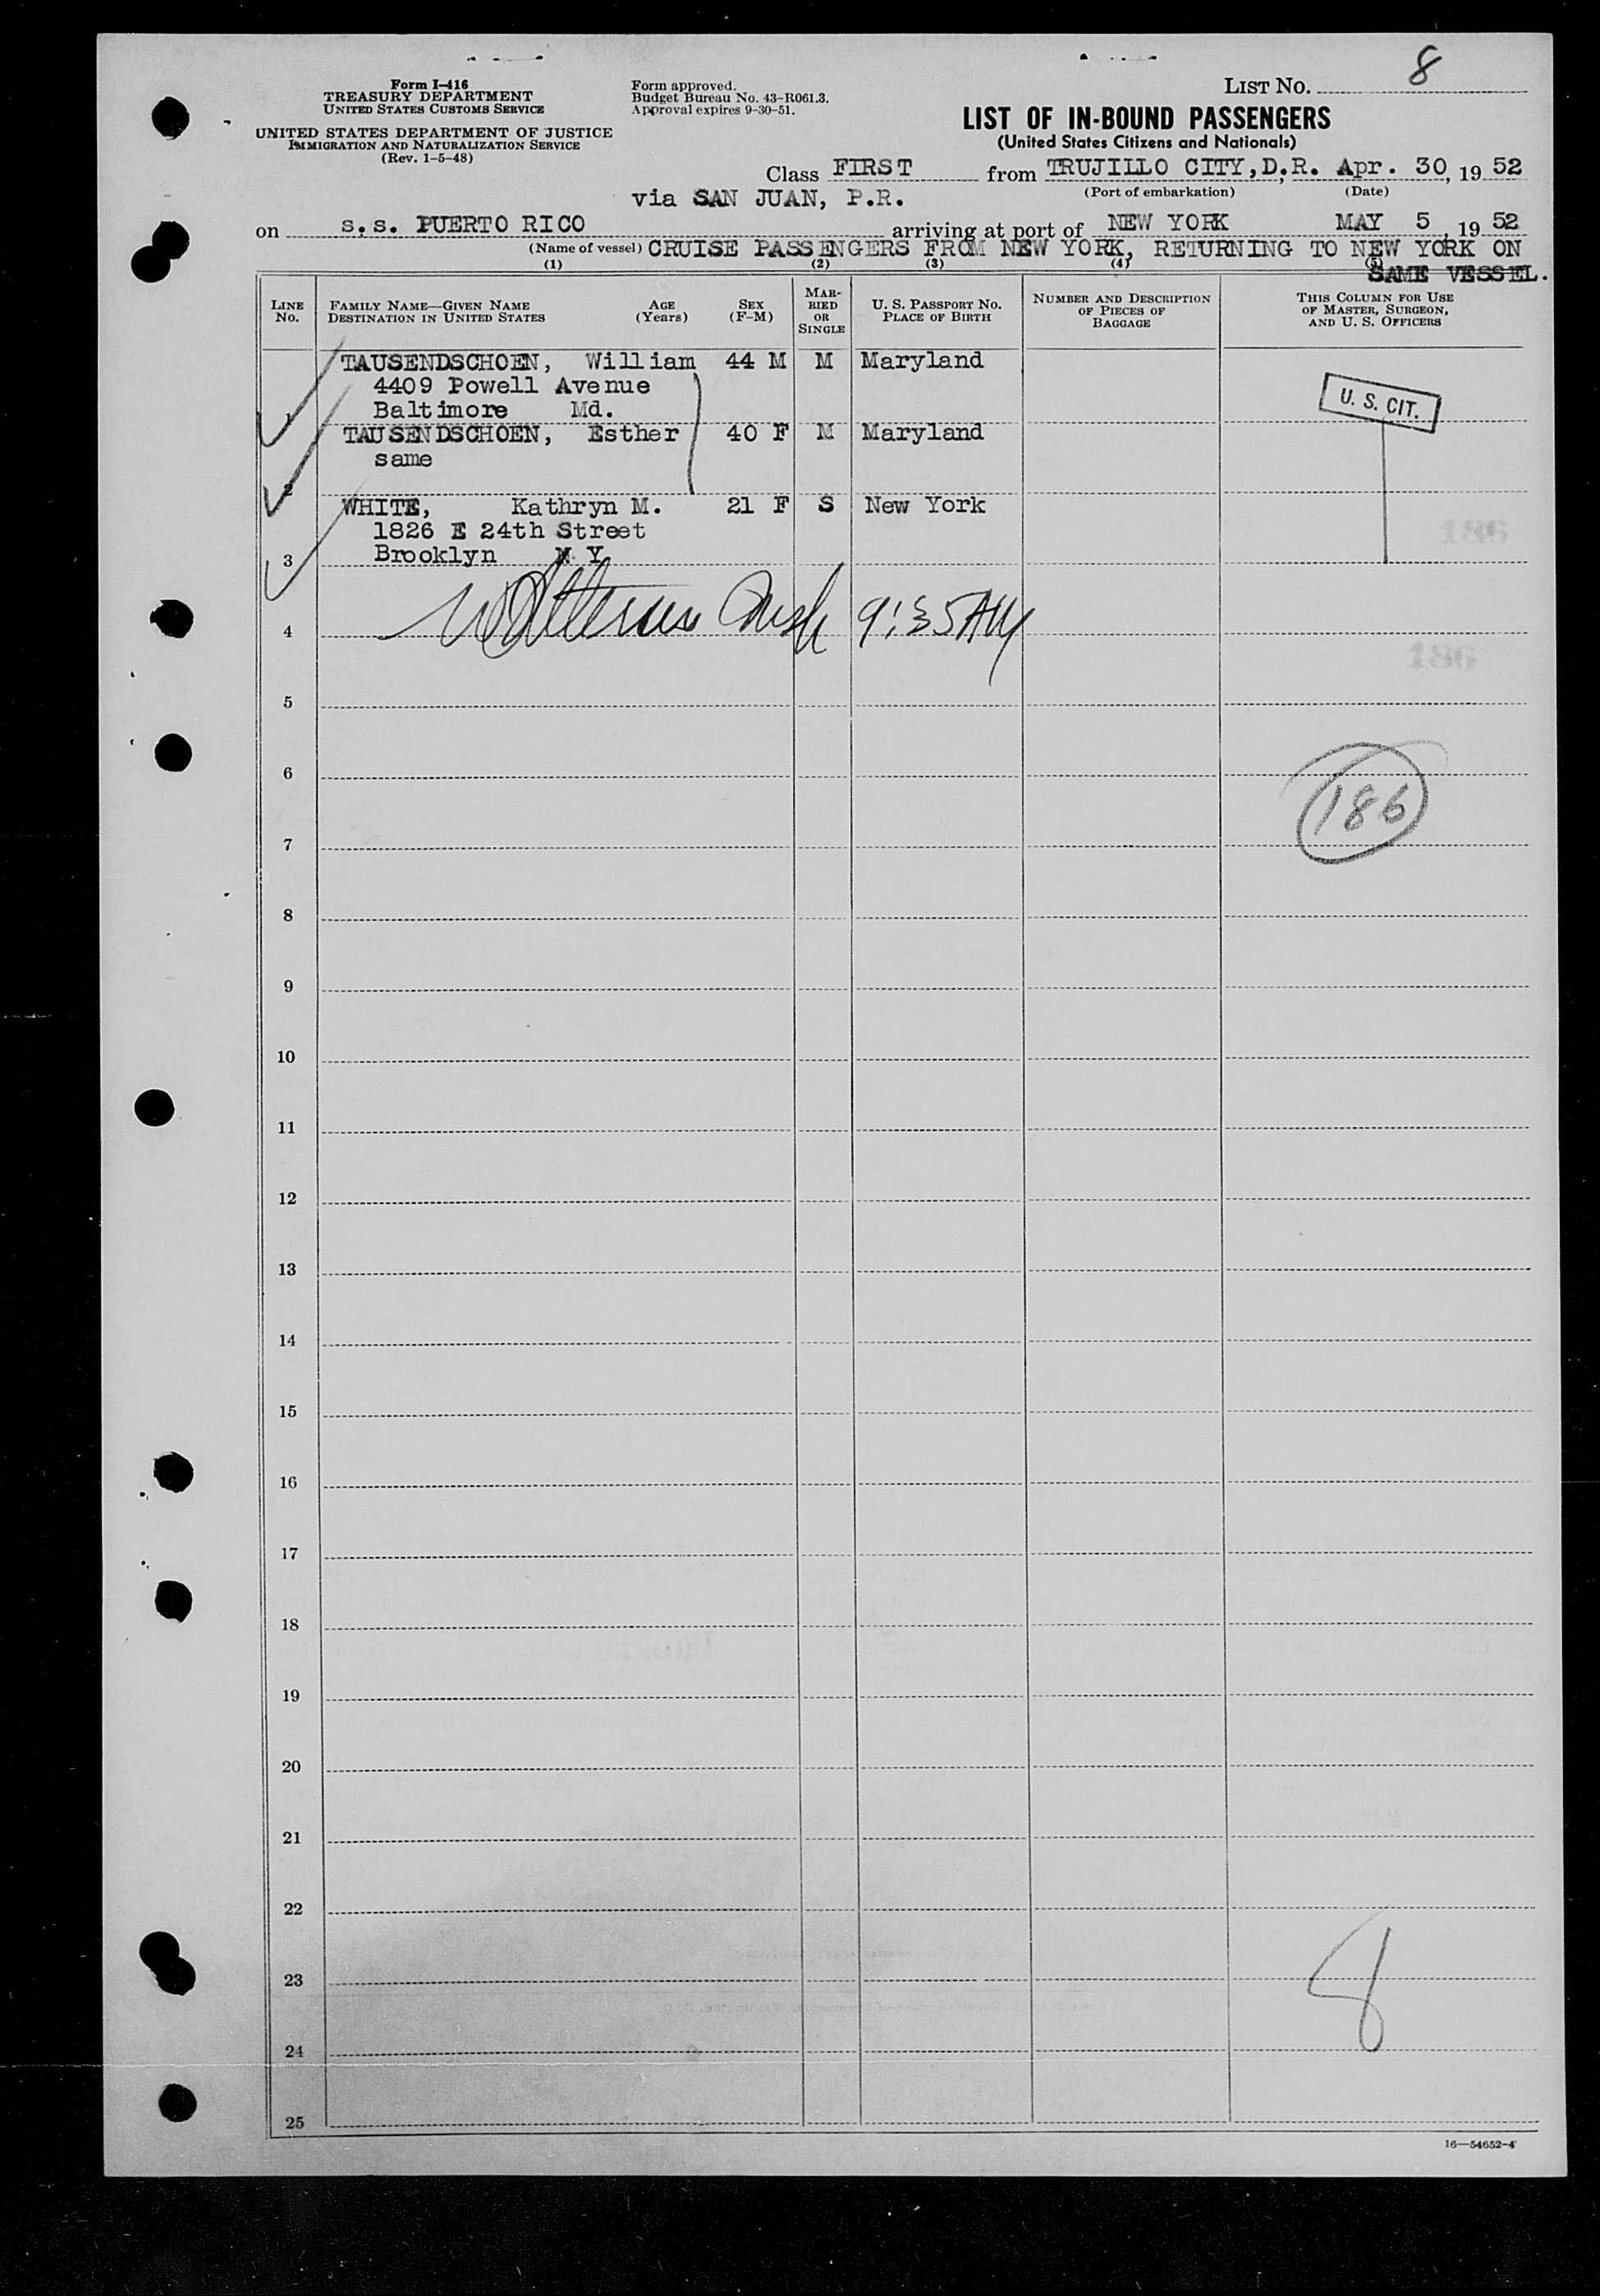 Form I-416
TREASURY DEPARTMENT
UNITED STATES CUSTOMS SERVICE
UNITED STATES DEPARTMENT OF JUSTICE
IMMIGRATION AND NATURALIZATION SERVICE
(Rev. 1-5-48)
Form approved.
Budget Bureau No. 43-R061.3.
Approval expires 9-30-51.
LIST NO. 8
LIST OF IN-BOUND PASSENGERS
(United States Citizens and Nationals)
Class FIRST from TRUJILLO CITY, D.R. Apr. 30, 19 52
(Port of embarkation) (Date)
via SAN JUAN, P.R.
on s.s. PUERTO RICO arriving at port of NEW YORK MAY 5, 19 52
(Name of vessel) CRUISE PASSENGERS FROM NEW YORK, RETURNING TO NEW YORK ON
SAME VESSEL.
(1) (2) (3) (4) (5)
LINE NO. FAMILY NAME—GIVEN NAME DESTINATION IN UNITED STATES AGE (Years) SEX (F-M) MARRIED OR SINGLE U. S. PASSPORT NO. PLACE OF BIRTH NUMBER AND DESCRIPTION OF PIECES OF BAGGAGE THIS COLUMN FOR USE OF MASTER, SURGEON, AND U. S. OFFICERS
TAUSENDSCHOEN, William 44 M M Maryland
4409 Powell Avenue
Baltimore Md.
U. S. CIT.
1
TAUSENDSCHOEN, Esther 40 F M Maryland
same
2
WHITE, Kathryn M. 21 F S New York
1826 E 24th Street
186
3 Brooklyn N Y
4 9:35 AM
186
5
6
186
7
8
9
10
11
12
13
14
15
16
17
18
19
20
21
22
23
8
24
25
16—54652-4